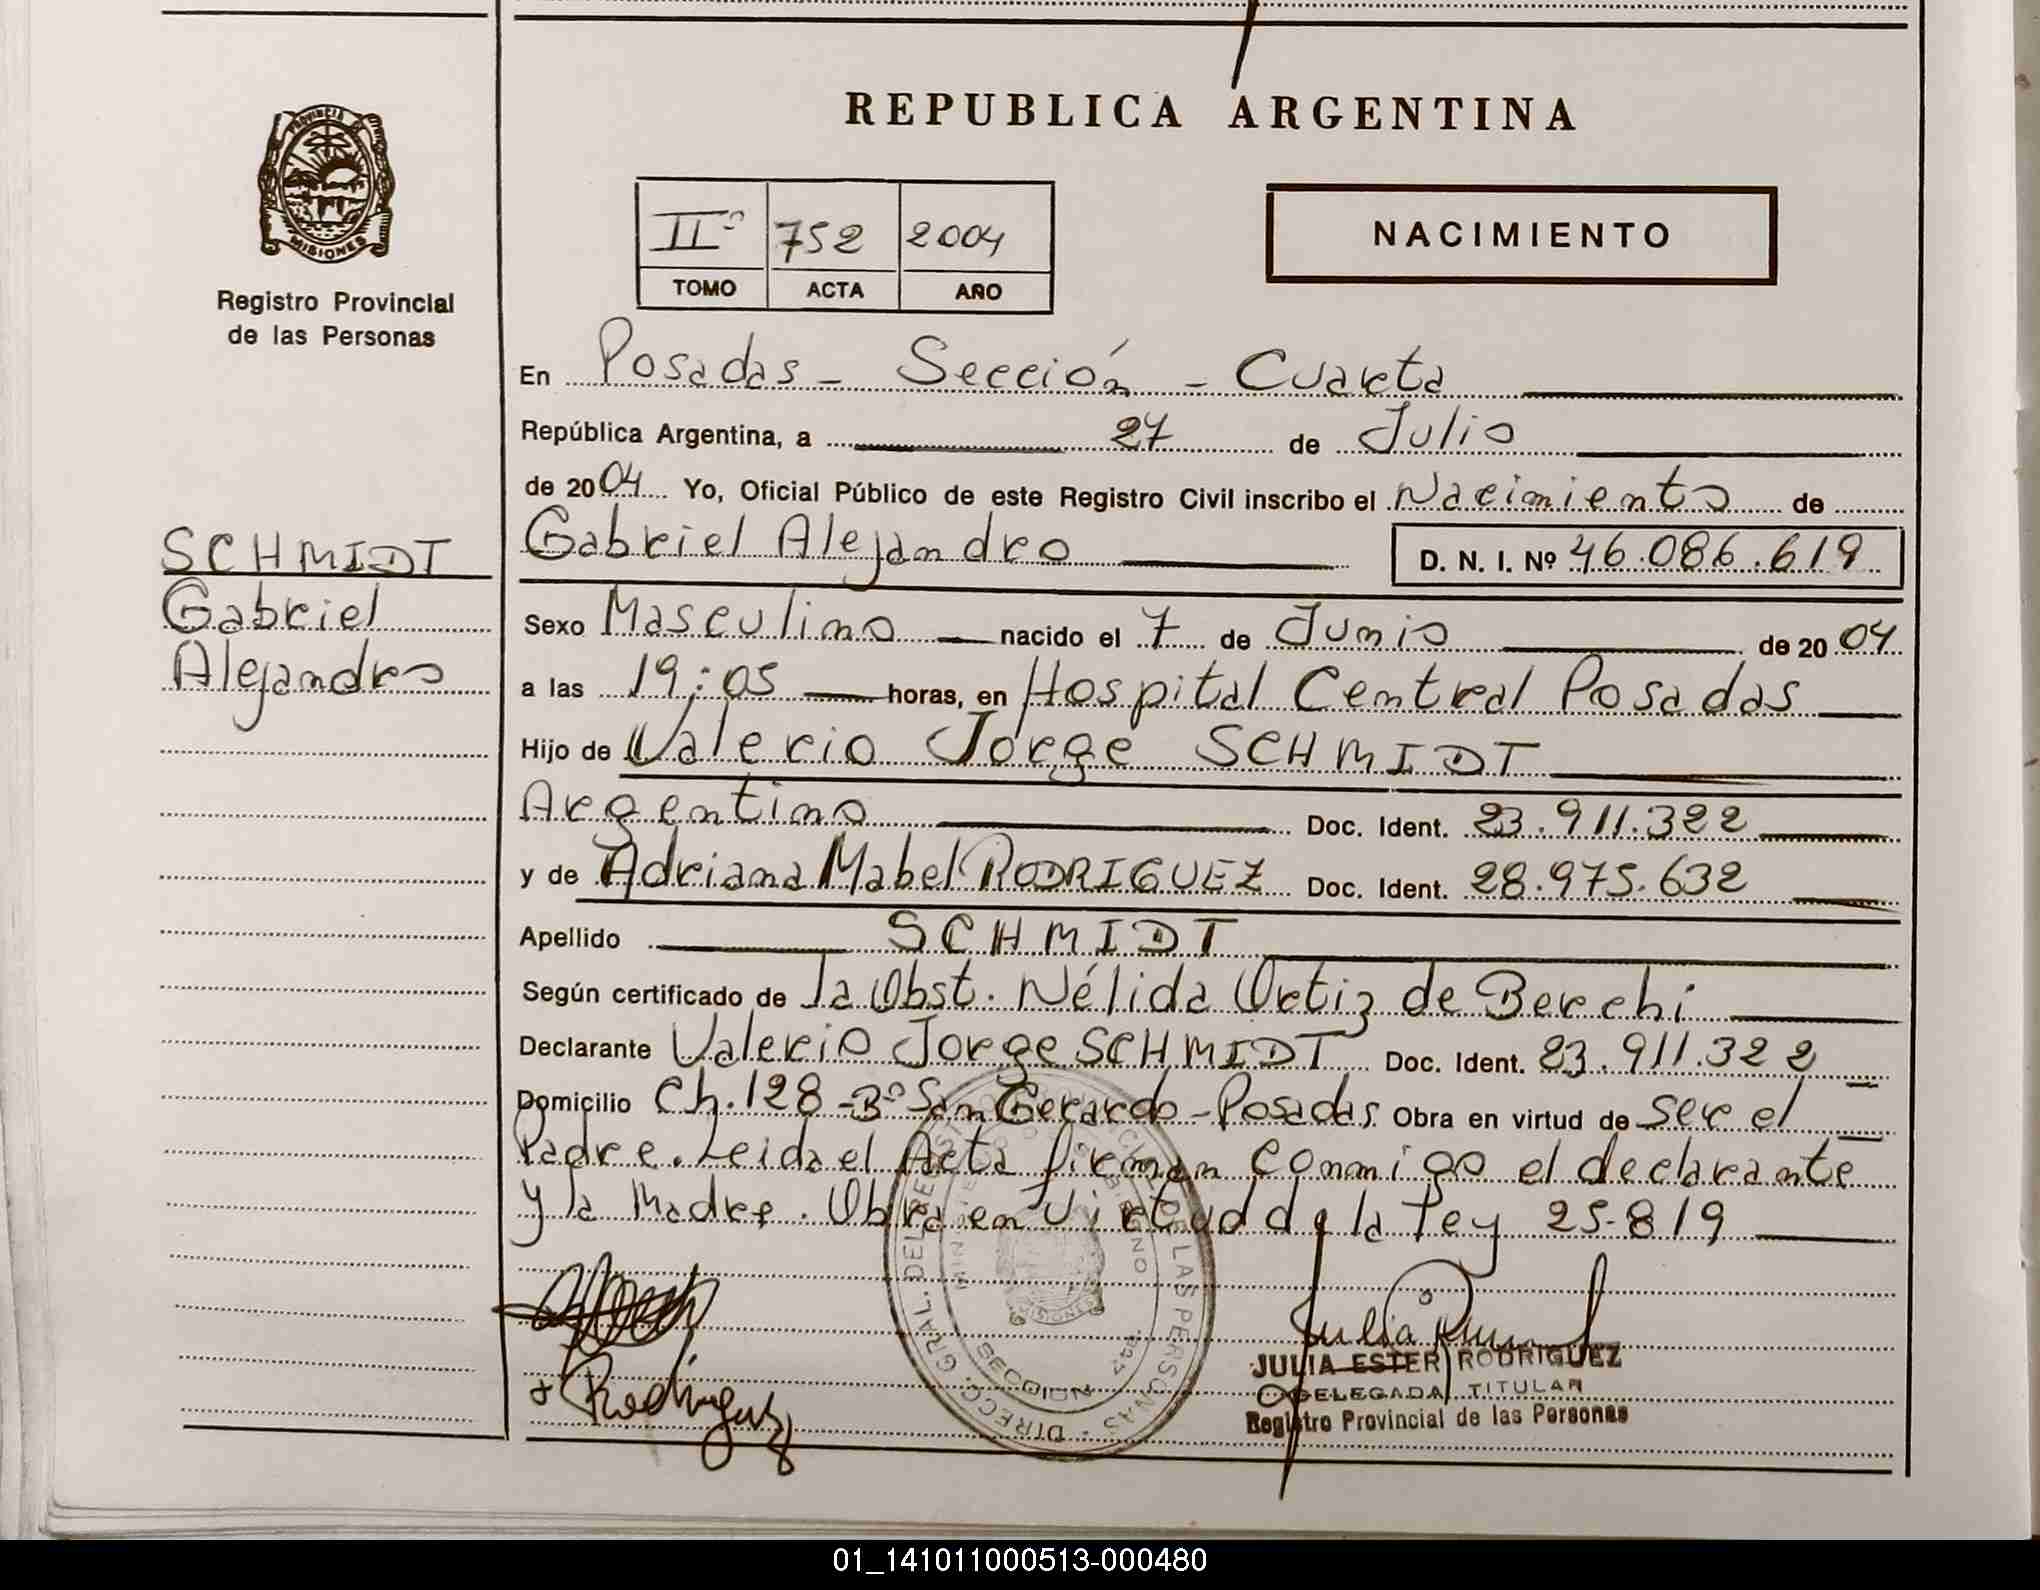 REPUBLICA ARGENTINA
PROVINCIA DE
MISIONES
Registro Provincial
de las Personas
IIº 752 2004
TOMO ACTA AÑO
NACIMIENTO
En Posadas - Sección - Cuarta
República Argentina, a 27 de Julio
de 2004 Yo, Oficial Público de este Registro Civil inscribo el Nacimiento de
SCHMIDT
Gabriel
Alejandro
Gabriel Alejandro D. N. I. Nº 46.086.619
Sexo Masculino nacido el 7 de Junio de 2004
a las 19:05 horas, en Hospital Central Posadas
Hijo de Valerio Jorge SCHMIDT
Argentino Doc. Ident. 23.911.322
y de Adriana Mabel RODRIGUEZ Doc. Ident. 28.975.632
Apellido SCHMIDT
Según certificado de la Obst. Nélida Ortiz de Berchi
Declarante Valerio Jorge SCHMIDT Doc. Ident. 23.911.322
Domicilio Ch. 128 - Bº San Gerardo - Posadas Obra en virtud de ser el
Padre. Leida el Acta firman conmigo el declarante
y la Madre. Obra en Virtud de la Ley 25-819
Rodriguez
JULIA ESTER RODRIGUEZ
DELEGADA TITULAR
Registro Provincial de las Personas
01_141011000513-000480